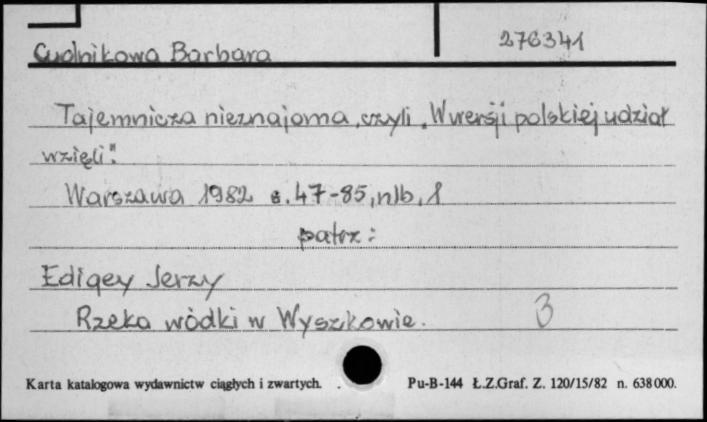 Cudnikowa Barbara
276341
Tajemnicza nieznajoma, czyli „W wersji polskiej udział
wzięli".
Warszawa 1982 s. 47-85, nlb, 1
patrz:
Edigey Jerzy
Rzeka wódki w Wyszkowie.
3
Karta katalogowa wydawnictw ciągłych i zwartych.
Pu-B-144 Ł.Z.Graf. Z. 120/15/82 n. 638000.